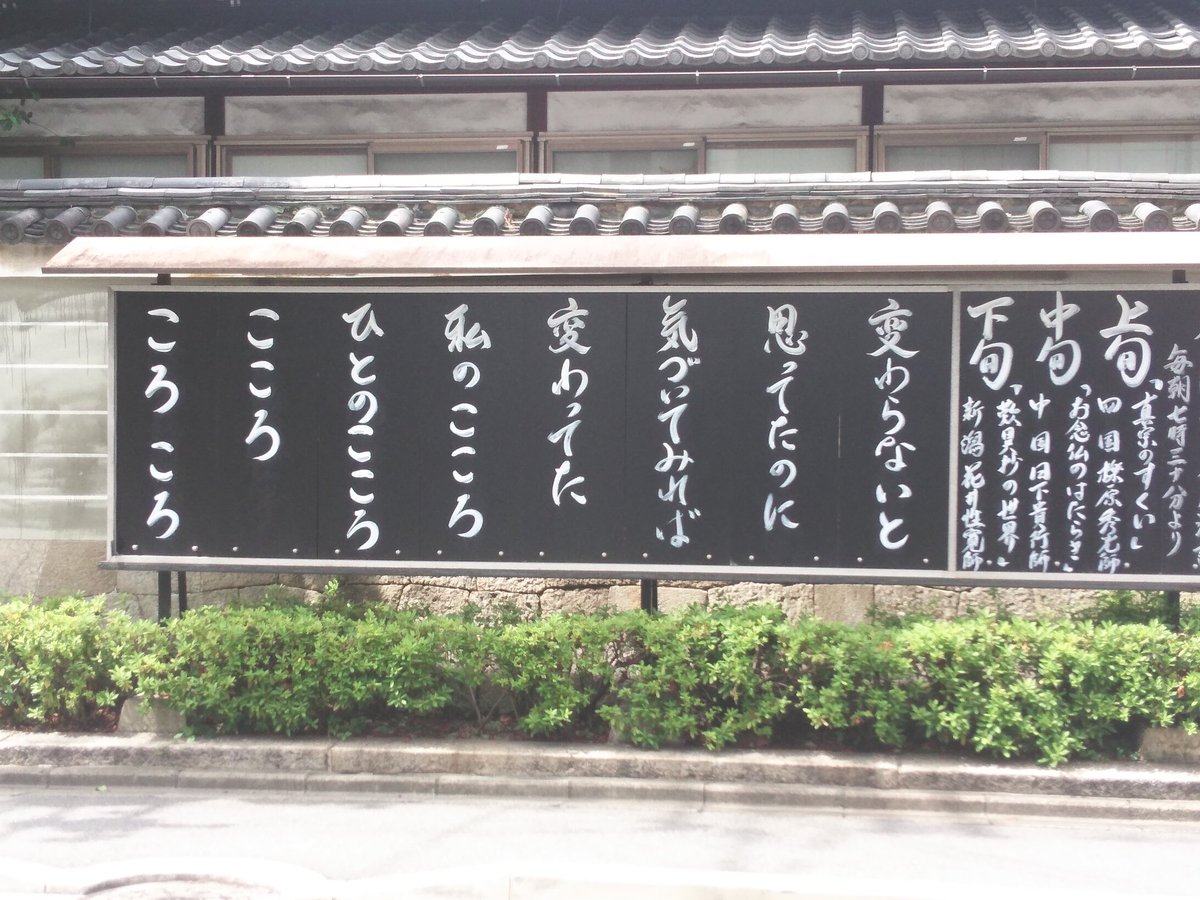 毎朝七時三十分より
上旬
「真宗のすくい」
四国 藤原秀光師
中旬
「お念仏のはたらき」
中国 日下貴行師
下旬
「歎異抄の世界」
新潟 花井性寛師
変わらないと
思ってたのに
気づいてみれば
変わってた
私のこころ
ひとのこころ
こころ
ころころ